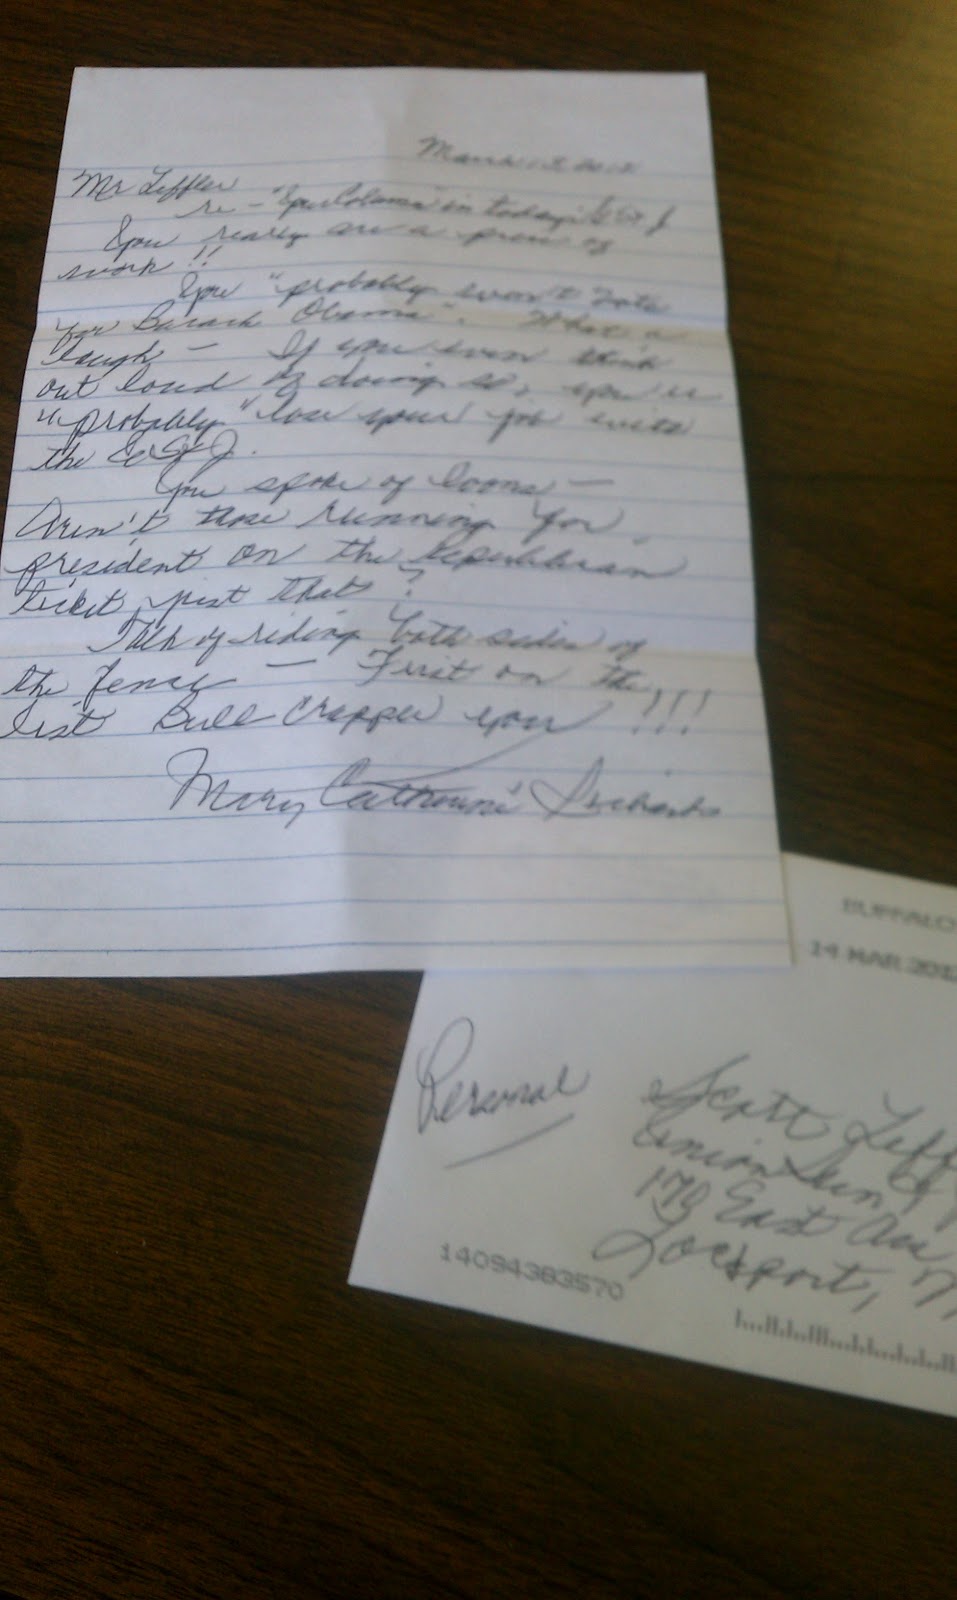 March 13 2012
Mr Leffler
re - "Your Column" in today's US & J
You really are a piece of
work!!
You "probably won't vote
for Barack Obama". What a
laugh - If you even think
out loud of doing so, you'll
"probably" lose your job with
the US&J.
You spoke of loons -
Aren't those running for
president on the Republican
ticket just that?
Talk of riding both sides of
the fence - First on the
list Bull Crapper you!!!
Mary Catherine
BUFFALO
14 MAR 2012
Personal
Scott Leff
Union Sun & J
170 East Ave
Lockport, N
14094383570